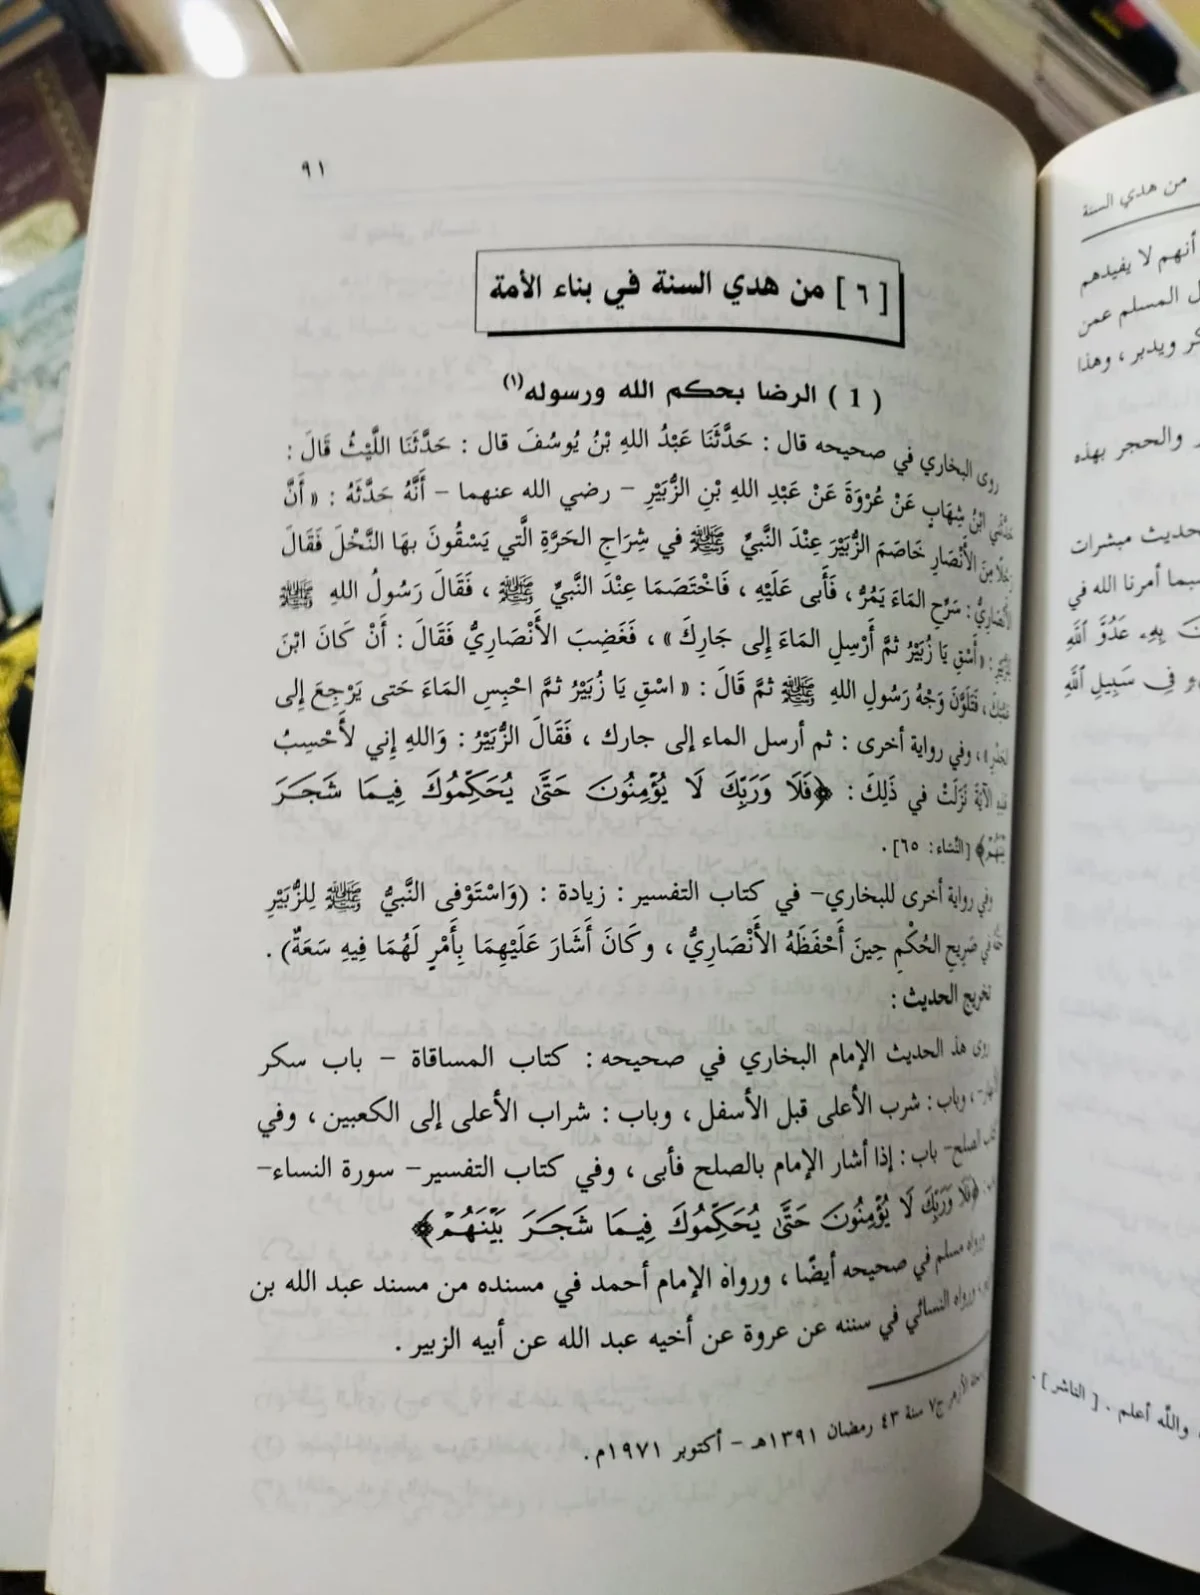 ٩١
[ ٦ ] من هدي السنة في بناء الأمة
( 1 ) الرضا بحكم الله ورسوله(١)
روى البخاري في صحيحه قال : حَدَّثَنَا عَبْدُ اللهِ بْنُ يُوسُفَ قال : حَدَّثَنَا اللَّيْثُ قَالَ :
ابْنُ شِهَابٍ عَنْ عُرْوَةَ عَنْ عَبْدِ اللهِ بْنِ الزُّبَيْرِ – رضي الله عنهما – أَنَّهُ حَدَّثَهُ : « أَنَّ
مِنَ الأَنْصَارِ خَاصَمَ الزُّبَيْرَ عِنْدَ النَّبِيِّ ﷺ في شِرَاجِ الحَرَّةِ الَّتي يَسْقُونَ بهَا النَّخْلَ فَقَالَ
الأَنْصَارِيُّ : سَرِّحِ المَاءَ يَمُرُّ ، فَأَبى عَلَيْهِ ، فَاخْتَصَمَا عِنْدَ النَّبيِّ ﷺ ، فَقَالَ رَسُولُ اللهِ ﷺ
: « أَسْقِ يَا زُبَيْرُ ثمَّ أَرْسِلِ المَاءَ إِلى جَارِكَ » ، فَغَضِبَ الأَنْصَارِيُّ فَقَالَ : أَنْ كَانَ ابْنَ
، فَتَلَوَّنَ وَجْهُ رَسُولِ اللهِ ﷺ ثمَّ قَالَ : « اسْقِ يَا زُبَيْرُ ثمَّ احْبِسِ المَاءَ حَتى يَرْجِعَ إِلى
» ، وفي رواية أخرى : ثم أرسل الماء إلى جارك ، فَقَالَ الزُّبَيْرُ : وَاللهِ إِني لأَحْسِبُ
الآيَةَ نَزَلَتْ في ذَلِكَ : ﴿فَلَا وَرَبِّكَ لَا يُؤْمِنُونَ حَتَّىٰ يُحَكِّمُوكَ فِيمَا شَجَرَ
بَيْنَهُمْ﴾ [النساء: ٦٥] .
وفي رواية أخرى للبخاري– في كتاب التفسير : زيادة : (وَاسْتَوْفى النَّبيُّ ﷺ لِلزُّبَيْرِ
في صَرِيحِ الحُكْمِ حِينَ أَحْفَظَهُ الأَنْصَارِيُّ ، وكَانَ أَشَارَ عَلَيْهِمَا بِأَمْرٍ لَهُمَا فِيهِ سَعَةٌ) .
تخريج الحديث :
روى هذ الحديث الإمام البخاري في صحيحه : كتاب المساقاة – باب سكر
، وباب : شرب الأعلى قبل الأسفل ، وباب : شراب الأعلى إلى الكعبين ، وفي
الصلح– باب : إذا أشار الإمام بالصلح فأبى ، وفي كتاب التفسير– سورة النساء–
﴿فَلَا وَرَبِّكَ لَا يُؤْمِنُونَ حَتَّىٰ يُحَكِّمُوكَ فِيمَا شَجَرَ بَيْنَهُمْ﴾
ورواه مسلم في صحيحه أيضًا ، ورواه الإمام أحمد في مسنده من مسند عبد الله بن
ورواه النسائي في سننه عن عروة عن أخيه عبد الله عن أبيه الزبير .
الأزهر ج٧ سنة ٤٣ رمضان ١٣٩١هـ – أكتوبر ١٩٧١م .
من هدي السنة
أنهم لا يفيدهم
المسلم عمن
ويدبر ، وهذا
والحجر بهذه
مبشرات
أمرنا الله في
بِهِۦ عَدُوَّ ٱللَّهِ
فِي سَبِيلِ ٱللَّهِ
والله أعلم . [ الناشر ] .